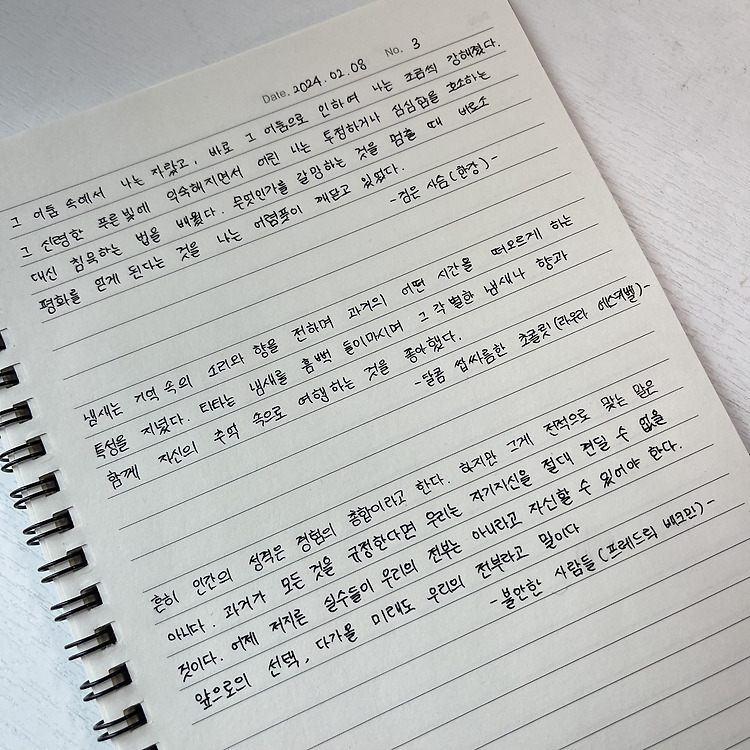 Date. 2024. 02. 08 No. 3
그 어둠 속에서 나는 자랐고, 바로 그 어둠으로 인하여 나는 조금씩 강해졌다.
그 신령한 푸른빛에 익숙해지면서 어린 나는 투정하거나 심심함을 호소하는
대신 침묵하는 법을 배웠다. 무엇인가를 갈망하는 것을 멈출 때 비로소
평화를 얻게 된다는 것을 나는 어렴풋이 깨닫고 있었다.
-검은 사슴(한강)-
냄새는 기억 속의 소리와 향을 전하며 과거의 어떤 시간을 떠오르게 하는
특성을 지녔다. 티타는 냄새를 흠뻑 들이마시며 그 각별한 냄새나 향과
함께 자신의 추억 속으로 여행하는 것을 좋아했다.
-달콤 쌉싸름한 초콜릿(라우라 에스키벨)-
흔히 인간의 성격은 경험의 총합이라고 한다. 하지만 그게 전적으로 맞는 말은
아니다. 과거가 모든 것을 규정한다면 우리는 자기자신을 절대 견딜 수 없을
것이다. 어제 저지른 실수들이 우리의 전부는 아니라고 자신할 수 있어야 한다.
앞으로의 선택, 다가올 미래도 우리의 전부라고 말이다
-불안한 사람들(프레드릭 배크만)-